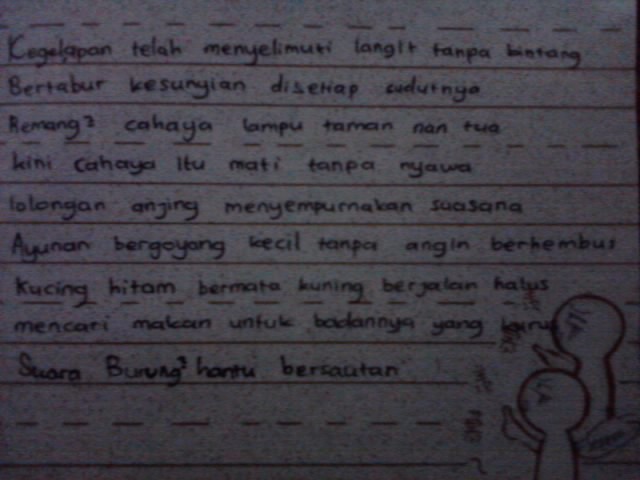 Kegelapan telah menyelimuti langit tanpa bintang
Bertabur kesunyian disetiap sudutnya
Remang² cahaya lampu taman nan tua
kini cahaya itu mati tanpa nyawa
lolongan anjing menyempurnakan suasana
Ayunan bergoyang kecil tanpa angin berhembus
Kucing hitam bermata kuning berjalan halus
mencari makan untuk badannya yang kurus
Suara Burung² hantu bersautan